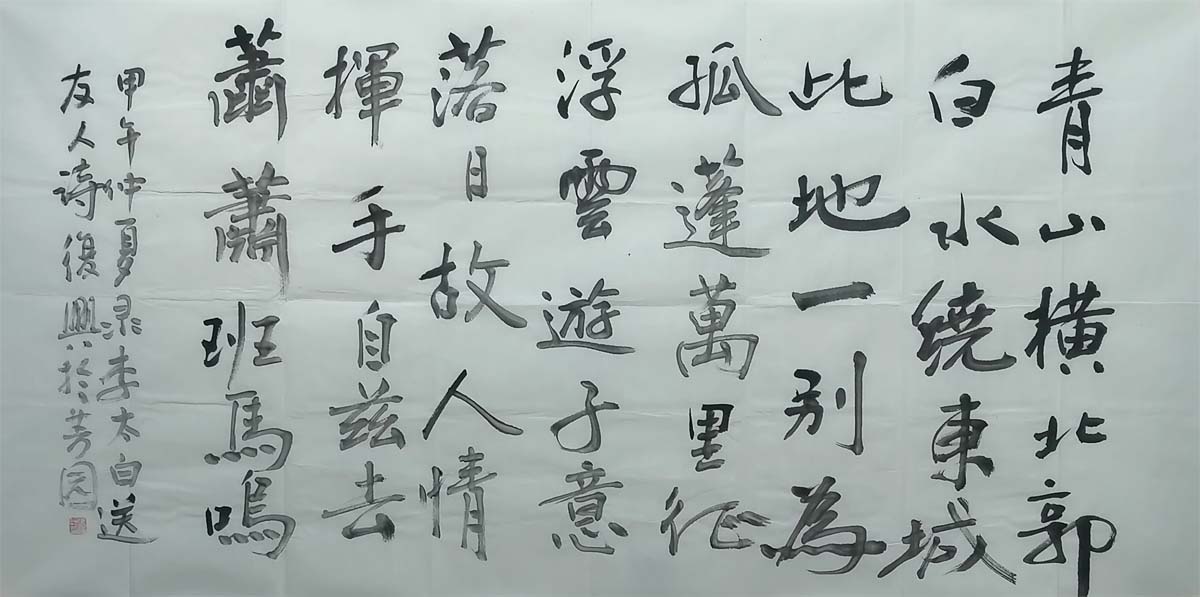 青山橫北郭
白水繞東城
此地一別為
孤蓬萬里征
浮雲遊子意
落日故人情
揮手自茲去
蕭蕭班馬鳴
甲午仲夏录李太白送
友人詩復興於芳園